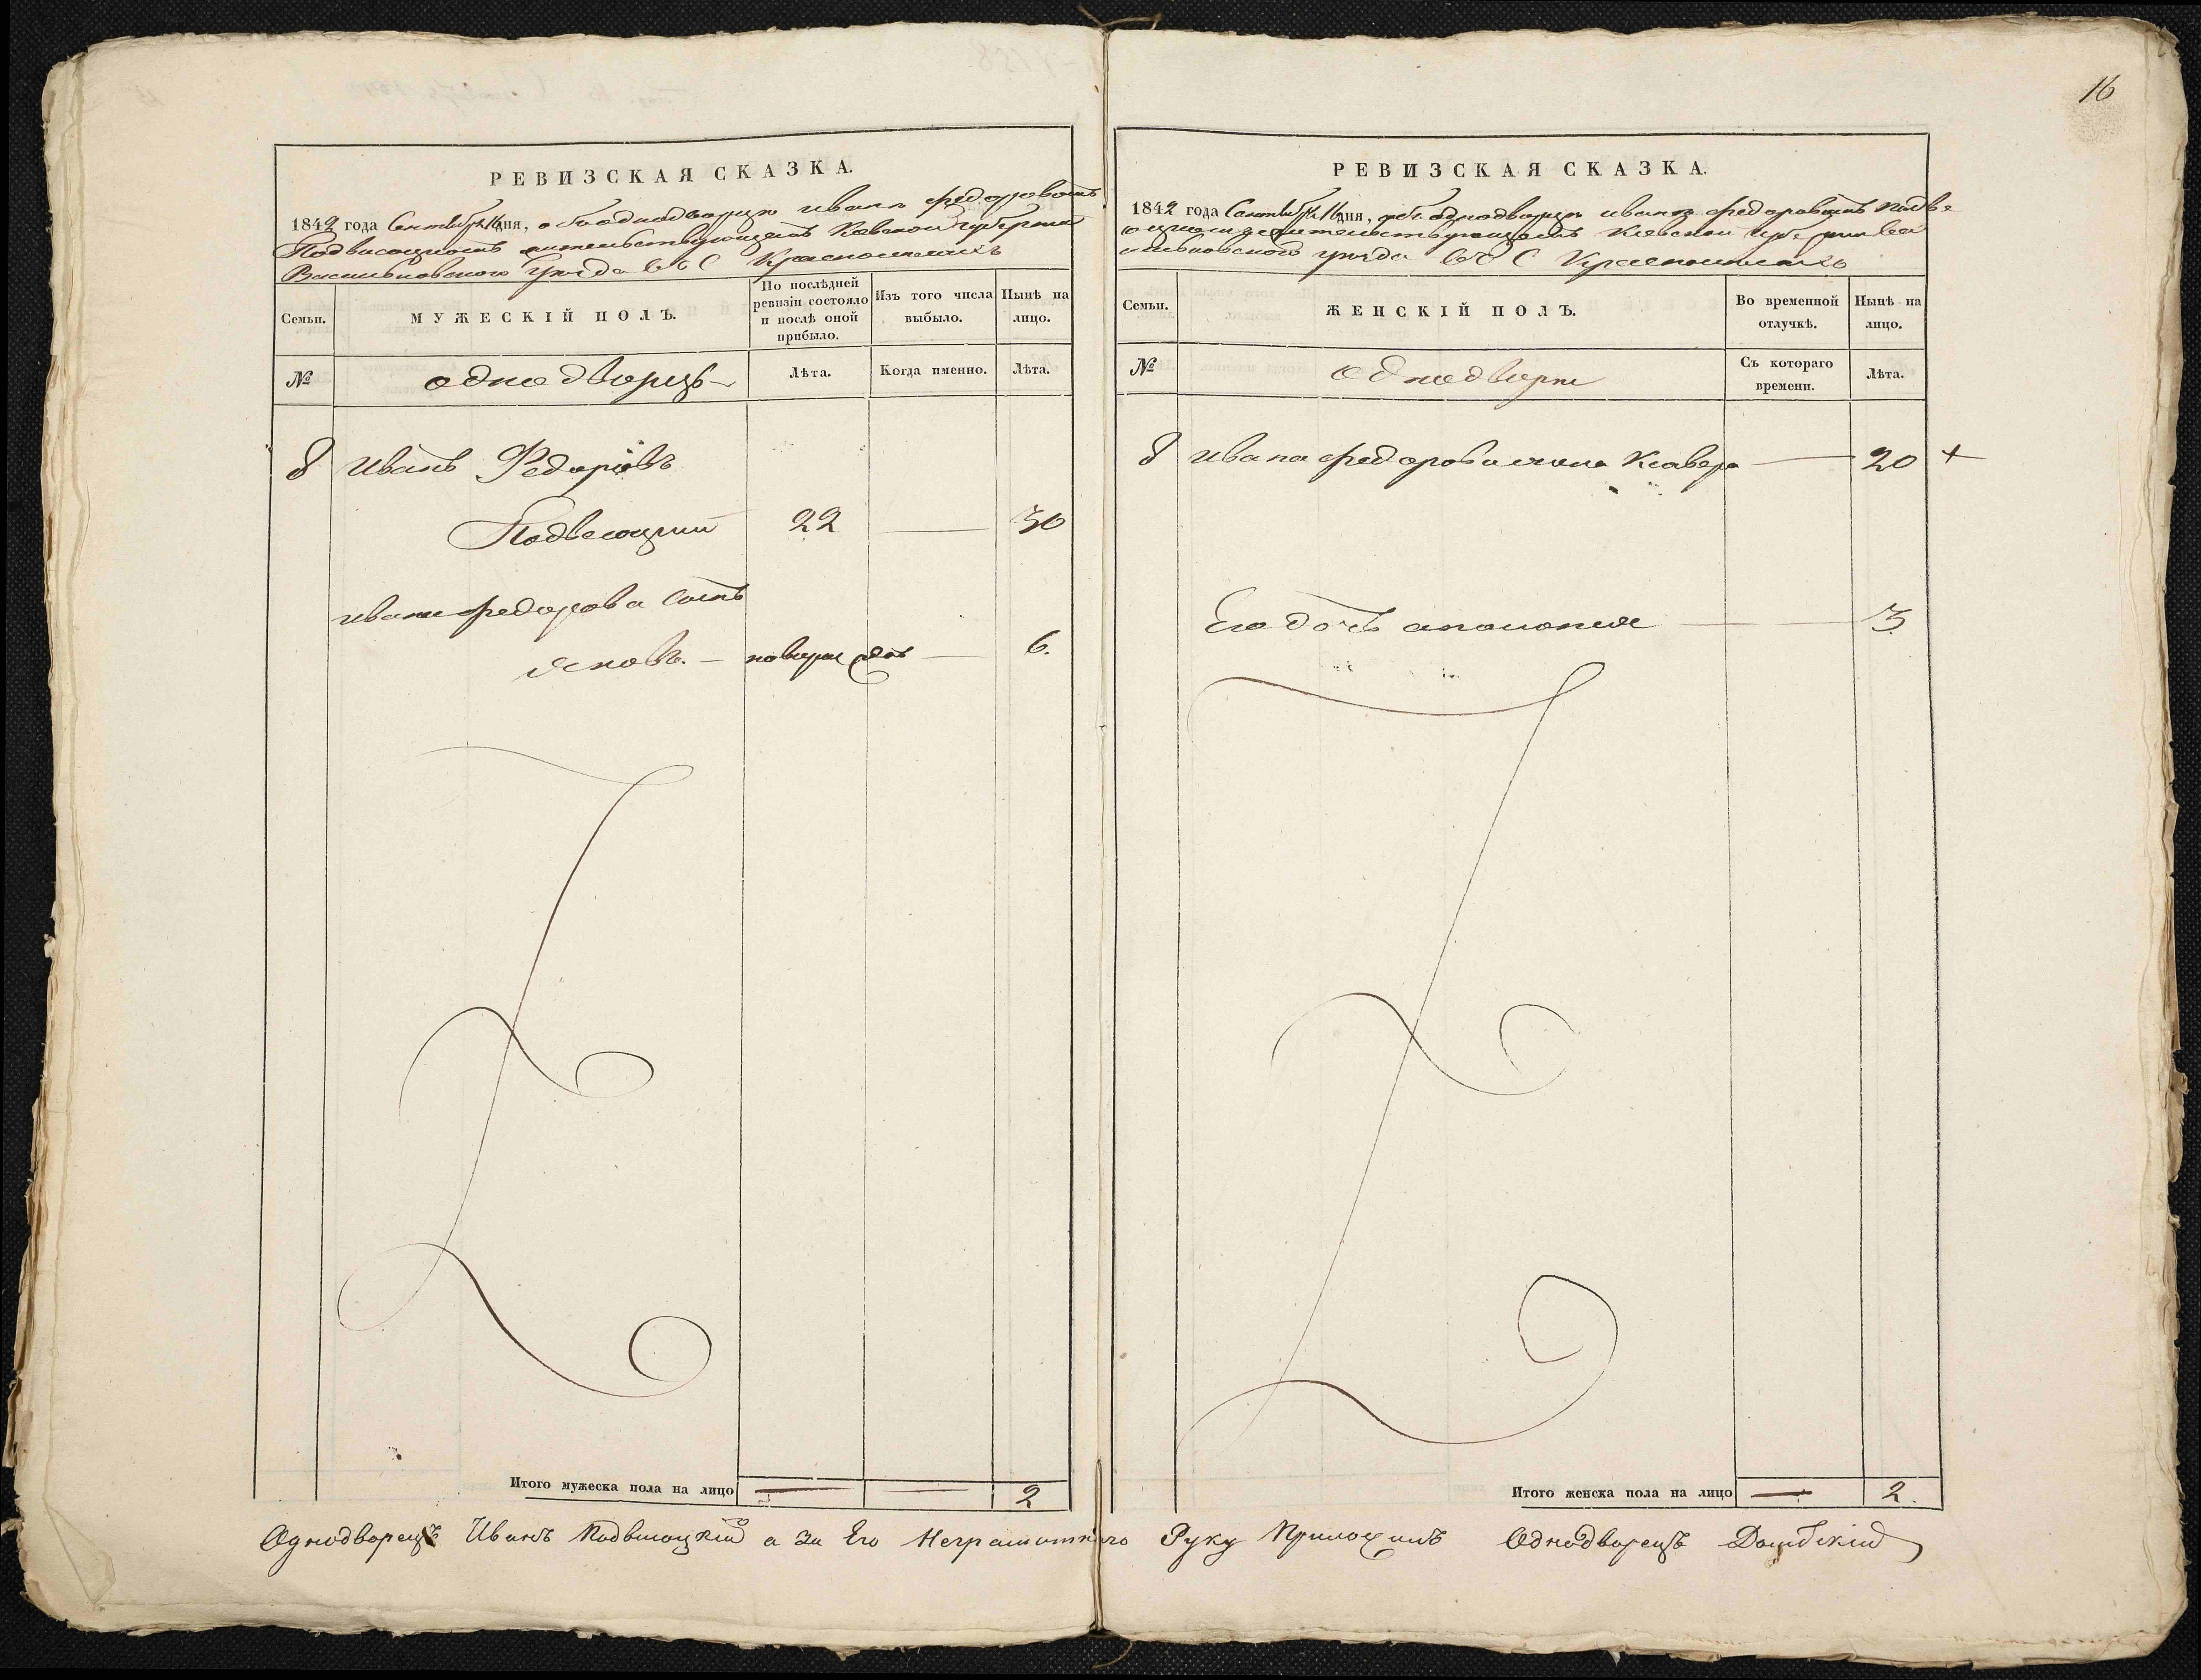 16
РЕВИЗСКАЯ СКАЗКА.
1842 года Сентября 16 дня, объ однодворцѣ иванѣ федоровомъ
Подвисоцкомъ жительствующемъ Кіевской губерніи
Васильковскаго уѣзда въ С
Семьи.
МУЖЕСКІЙ ПОЛЪ.
По послѣдней ревизіи состояло и послѣ оной прибыло.
Изъ того числа выбыло.
Нынѣ на лицо.
№
однодворецъ
Лѣта.
Когда именно.
Лѣта.
8 иванъ Федоровъ
Подвесоцкий 22 — 30
ивана федорова сынъ
яковъ. — новорожден — 6.
Итого мужеска пола на лицо — — 2
РЕВИЗСКАЯ СКАЗКА.
1842 года Сентября 16 дня, объ однодворцѣ иванѣ федоровомъ Подве
соцкомъ жительствующемъ Кіевской губерніи Вас
ильковского уезда въ С
Семьи.
ЖЕНСКІЙ ПОЛЪ.
Во временной отлучкѣ.
Нынѣ на лицо.
№
однодворки
Съ котораго времени.
Лѣта.
8 ивана федорова жена Ксавера — 20 +
Его дочь аполония — 3
Итого женска пола на лицо — 2.
Однодворецъ Иванъ Подвисоцкій а За Его Неграмотного Руку Приложилъ Однодворецъ